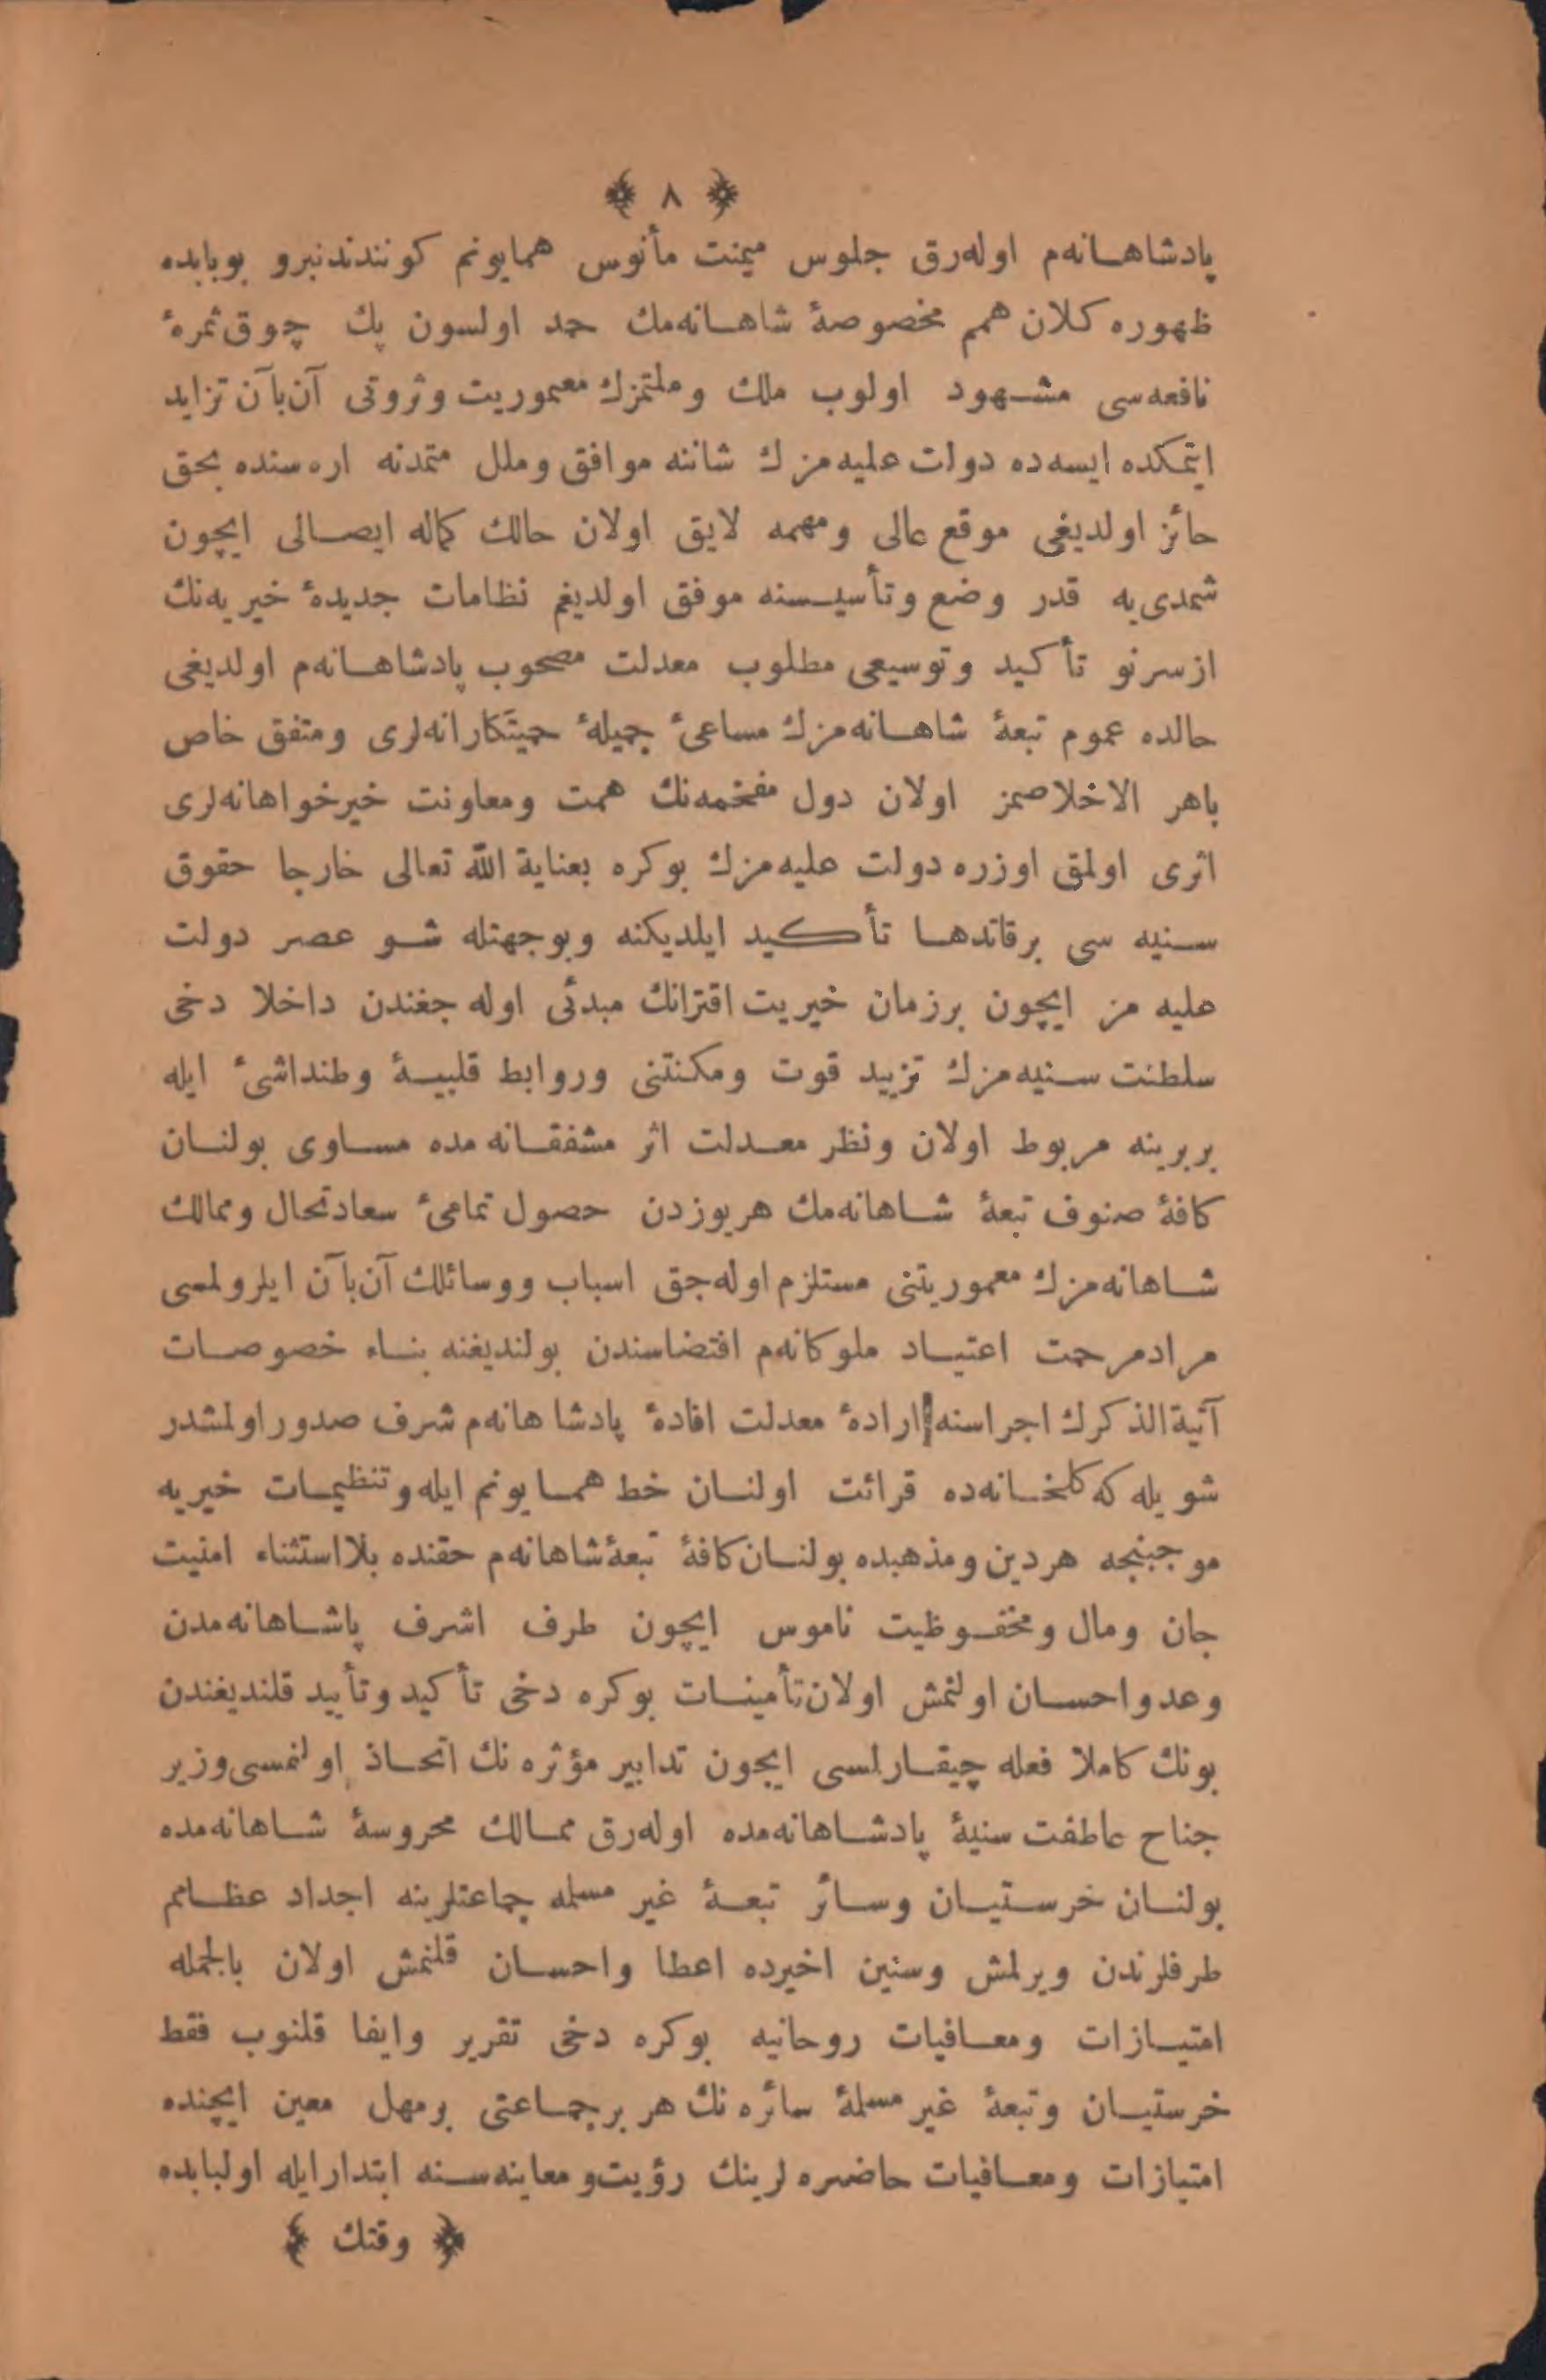 ﴿ ٨ ﴾
پادشاهانه‌م اوله‌رق جلوس ميمنت مأنوس همايونم كونندنبرو بوبابده
ظهوره كلان همم مخصوصۀ شاهانه‌مك حمد اولسون پك چوق ثمرۀ
نافعه‌سى مشهود اولوب ملك وملتمزك معموريت وثروتى آن‌بآن تزايد
ايتمكده ايسه‌ده دولت عليه‌مزك شاننه موافق وملل متمدنه اره‌سنده بحق
حائز اولديغى موقع عالى ومهمه لايق اولان حالك كماله ايصالى ايچون
شمدى‌يه قدر وضع وتأسيسنه موفق اولديغم نظامات جديدۀ خيريه‌نك
ازسرنو تأكيد وتوسيعى مطلوب معدلت مصحوب پادشاهانه‌م اولديغى
حالده عموم تبعۀ شاهانه‌مزك مساعئ جميلۀ حميتكارانه‌لرى ومتفق خاص
باهر الاخلاصمز اولان دول مفخمه‌نك همت ومعاونت خيرخواهانه‌لرى
اثرى اولمق اوزره دولت عليه‌مزك بوكره بعناية الله تعالى خارجا حقوق
سنيه سى برقاتدها تأكيد ايلديكنه وبوجهتله شو عصر دولت
عليه مز ايچون برزمان خيريت اقترانك مبدئى اوله جغندن داخلا دخى
سلطنت سنيه‌مزك تزييد قوت ومكنتنى وروابط قلبيۀ وطنداشئ ايله
بربرينه مربوط اولان ونظر معدلت اثر مشفقانه مده مساوى بولنان
كافۀ صنوف تبعۀ شاهانه‌مك هريوزدن حصول تمامئ سعادتحال وممالك
شاهانه‌مزك معموريتنى مستلزم اوله‌جق اسباب ووسائلك آن‌بآن ايلرولمسى
مرادمرحمت اعتياد ملوكانه‌م اقتضاسندن بولنديغنه بناء خصوصات
آتية‌الذكرك اجراسنه ارادۀ معدلت افادۀ پادشاهانه‌م شرف صدور اولمشدر
شويله كه كلخانه‌ده قرائت اولنان خط همايونم ايله وتنظيمات خيريه
موجبنجه هردين ومذهبده بولنان كافۀ تبعۀ شاهانه‌م حقنده بلااستثناء امنيت
جان ومال ومحفوظيت ناموس ايچون طرف اشرف پاشاهانه‌مدن
وعدواحسان اولنمش اولان تأمينات بوكره دخى تأكيد وتأييد قلنديغندن
بونك كاملا فعله چيقارلسى ايچون تدابير مؤثره نك اتخاذ اولنمسى وزير
جناح عاطفت سنيۀ پادشاهانه‌مده اوله‌رق ممالك محروسۀ شاهانه‌مده
بولنان خرستيان وسائر تبعۀ غير مسلمه جماعتلرينه اجداد عظامم
طرفلرندن ويرلمش وسنين اخيرده اعطا واحسان قلنمش اولان بالجمله
امتيازات ومعافيات روحانيه بوكره دخى تقرير وايفا قلنوب فقط
خرستيان وتبعۀ غير مسلمۀ سائره نك هر برجماعتى برمهل معين ايچنده
امتيازات ومعافيات حاضره لرينك رؤيت ومعاينه‌سنه ابتدارايله اولبابده
﴿ وقتك ﴾